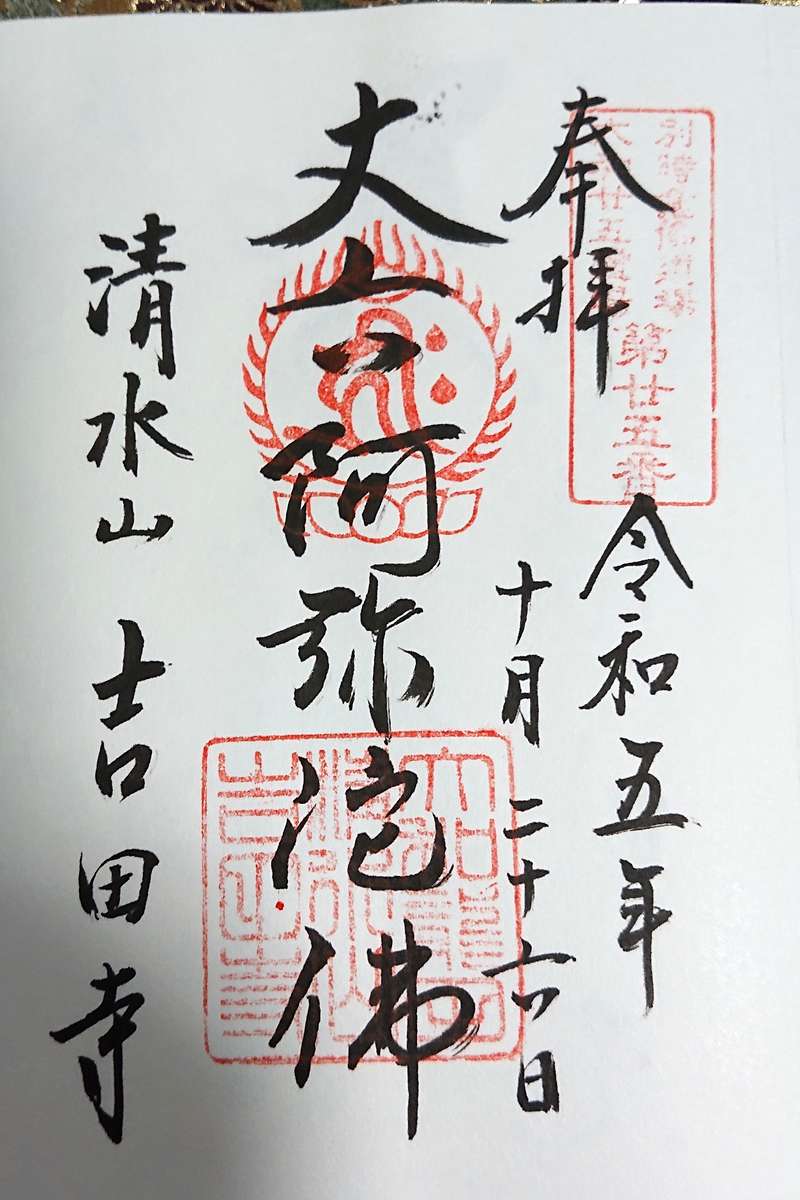 別時念佛道場
大和廿五霊場
第廿五番
奉拝
令和五年
十月二十六日
丈六阿弥陀佛
清水山 吉田寺